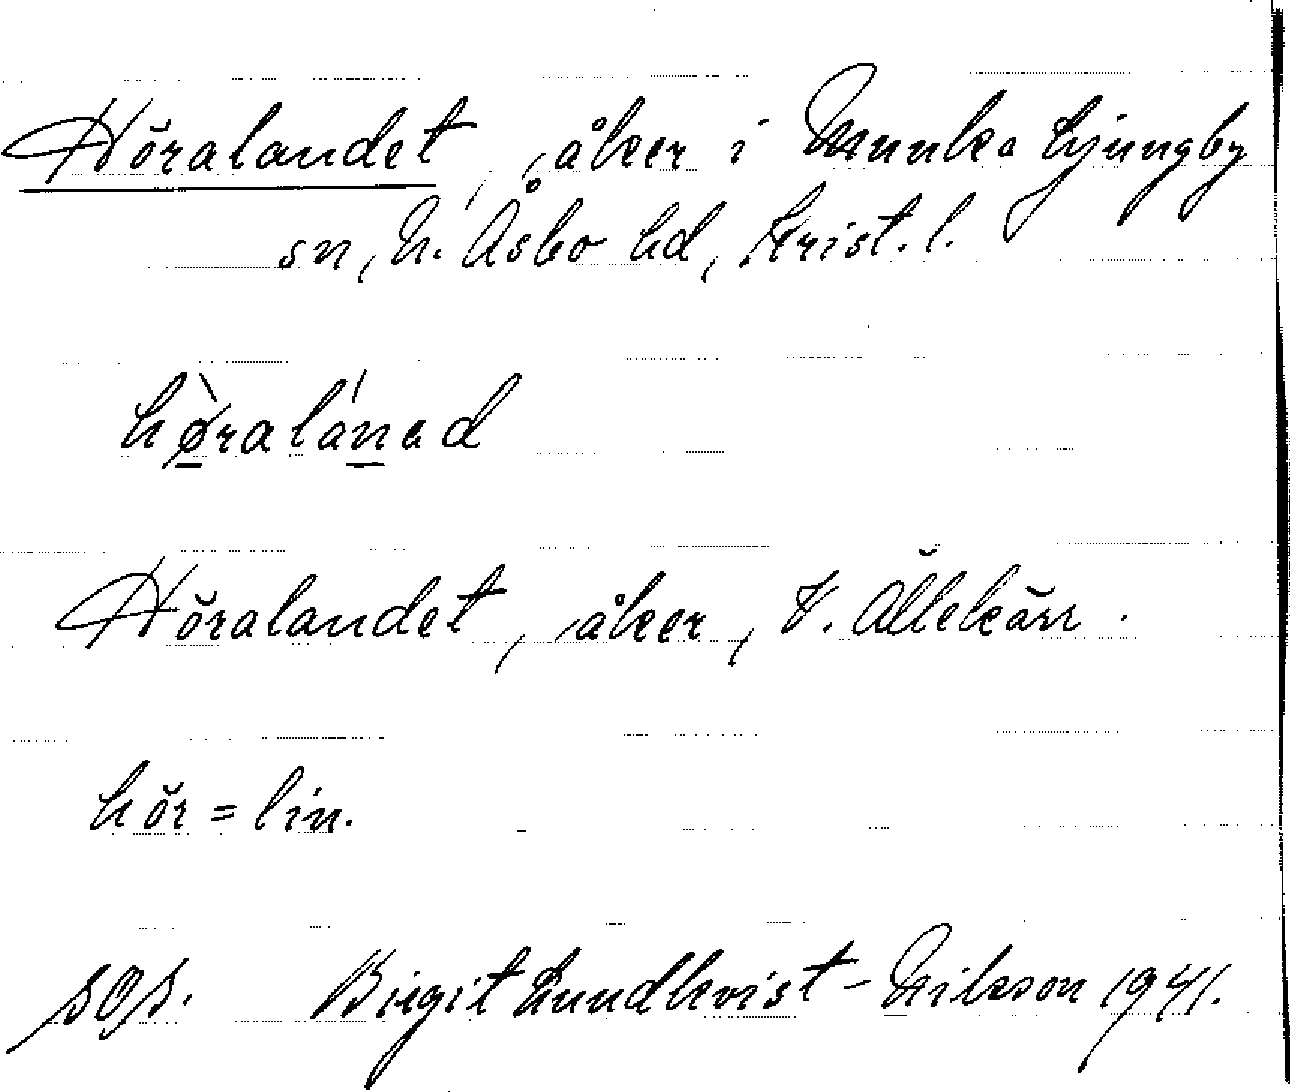 Höralandet, åker i Munka Ljungby
sn, N. Åsbo hd, Krist. l.
hø̀ralánad
Höralandet, åker, V. Ällekärr.
hör = lin.
Birgit Lundkvist-Nilsson 1941.